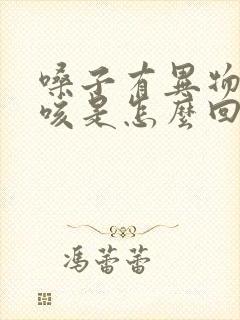 嗓子有異物
咳是怎麼回
馮蕾蕾